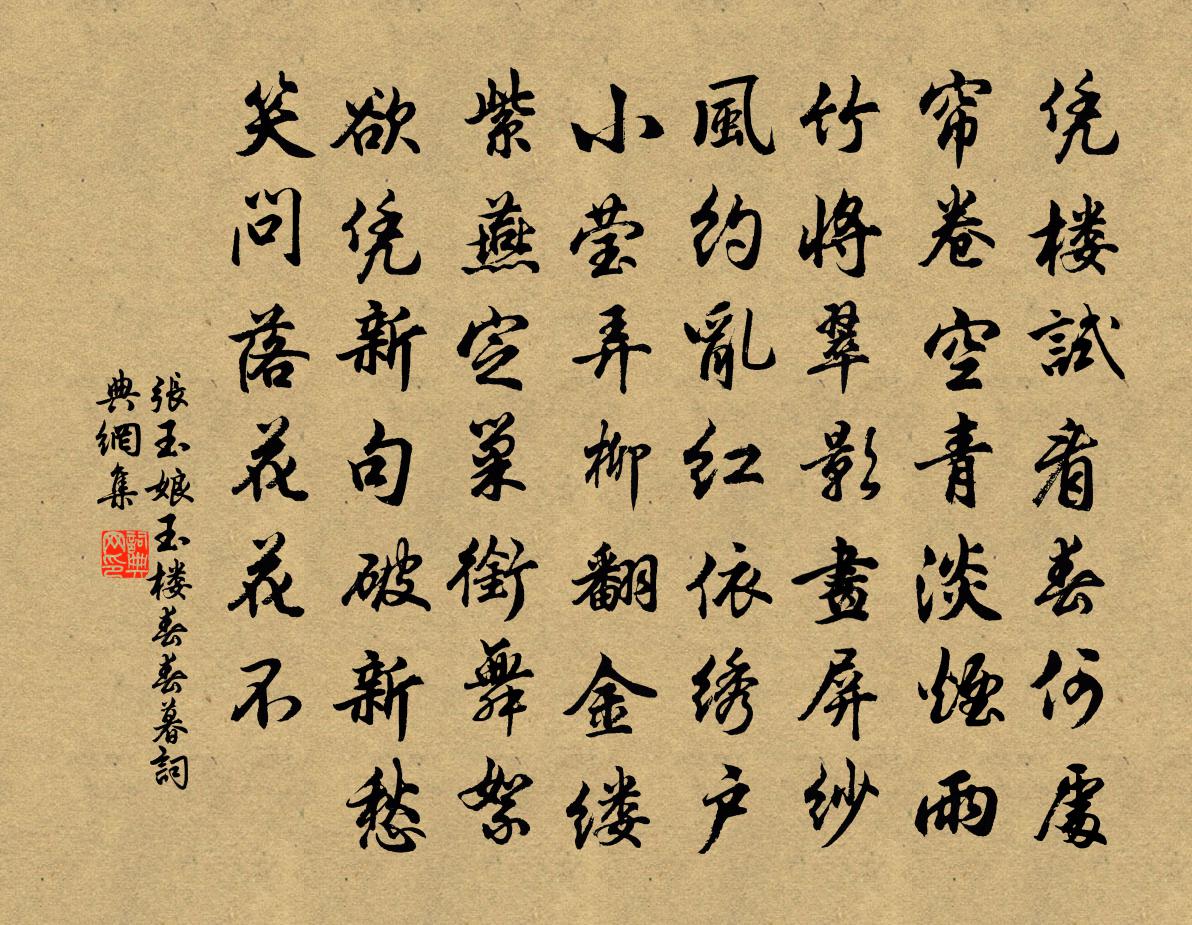 凭楼試看春何處
帘卷空青淡煙雨
竹將翠影畫屏紗
風約亂红依绣户
小莹弄柳翻金缕
紫燕定巢銜舞絮
欲凭新句破新愁
笑問落花花不
張玉娘玉楼春春暮詞
典網集
詞典网印